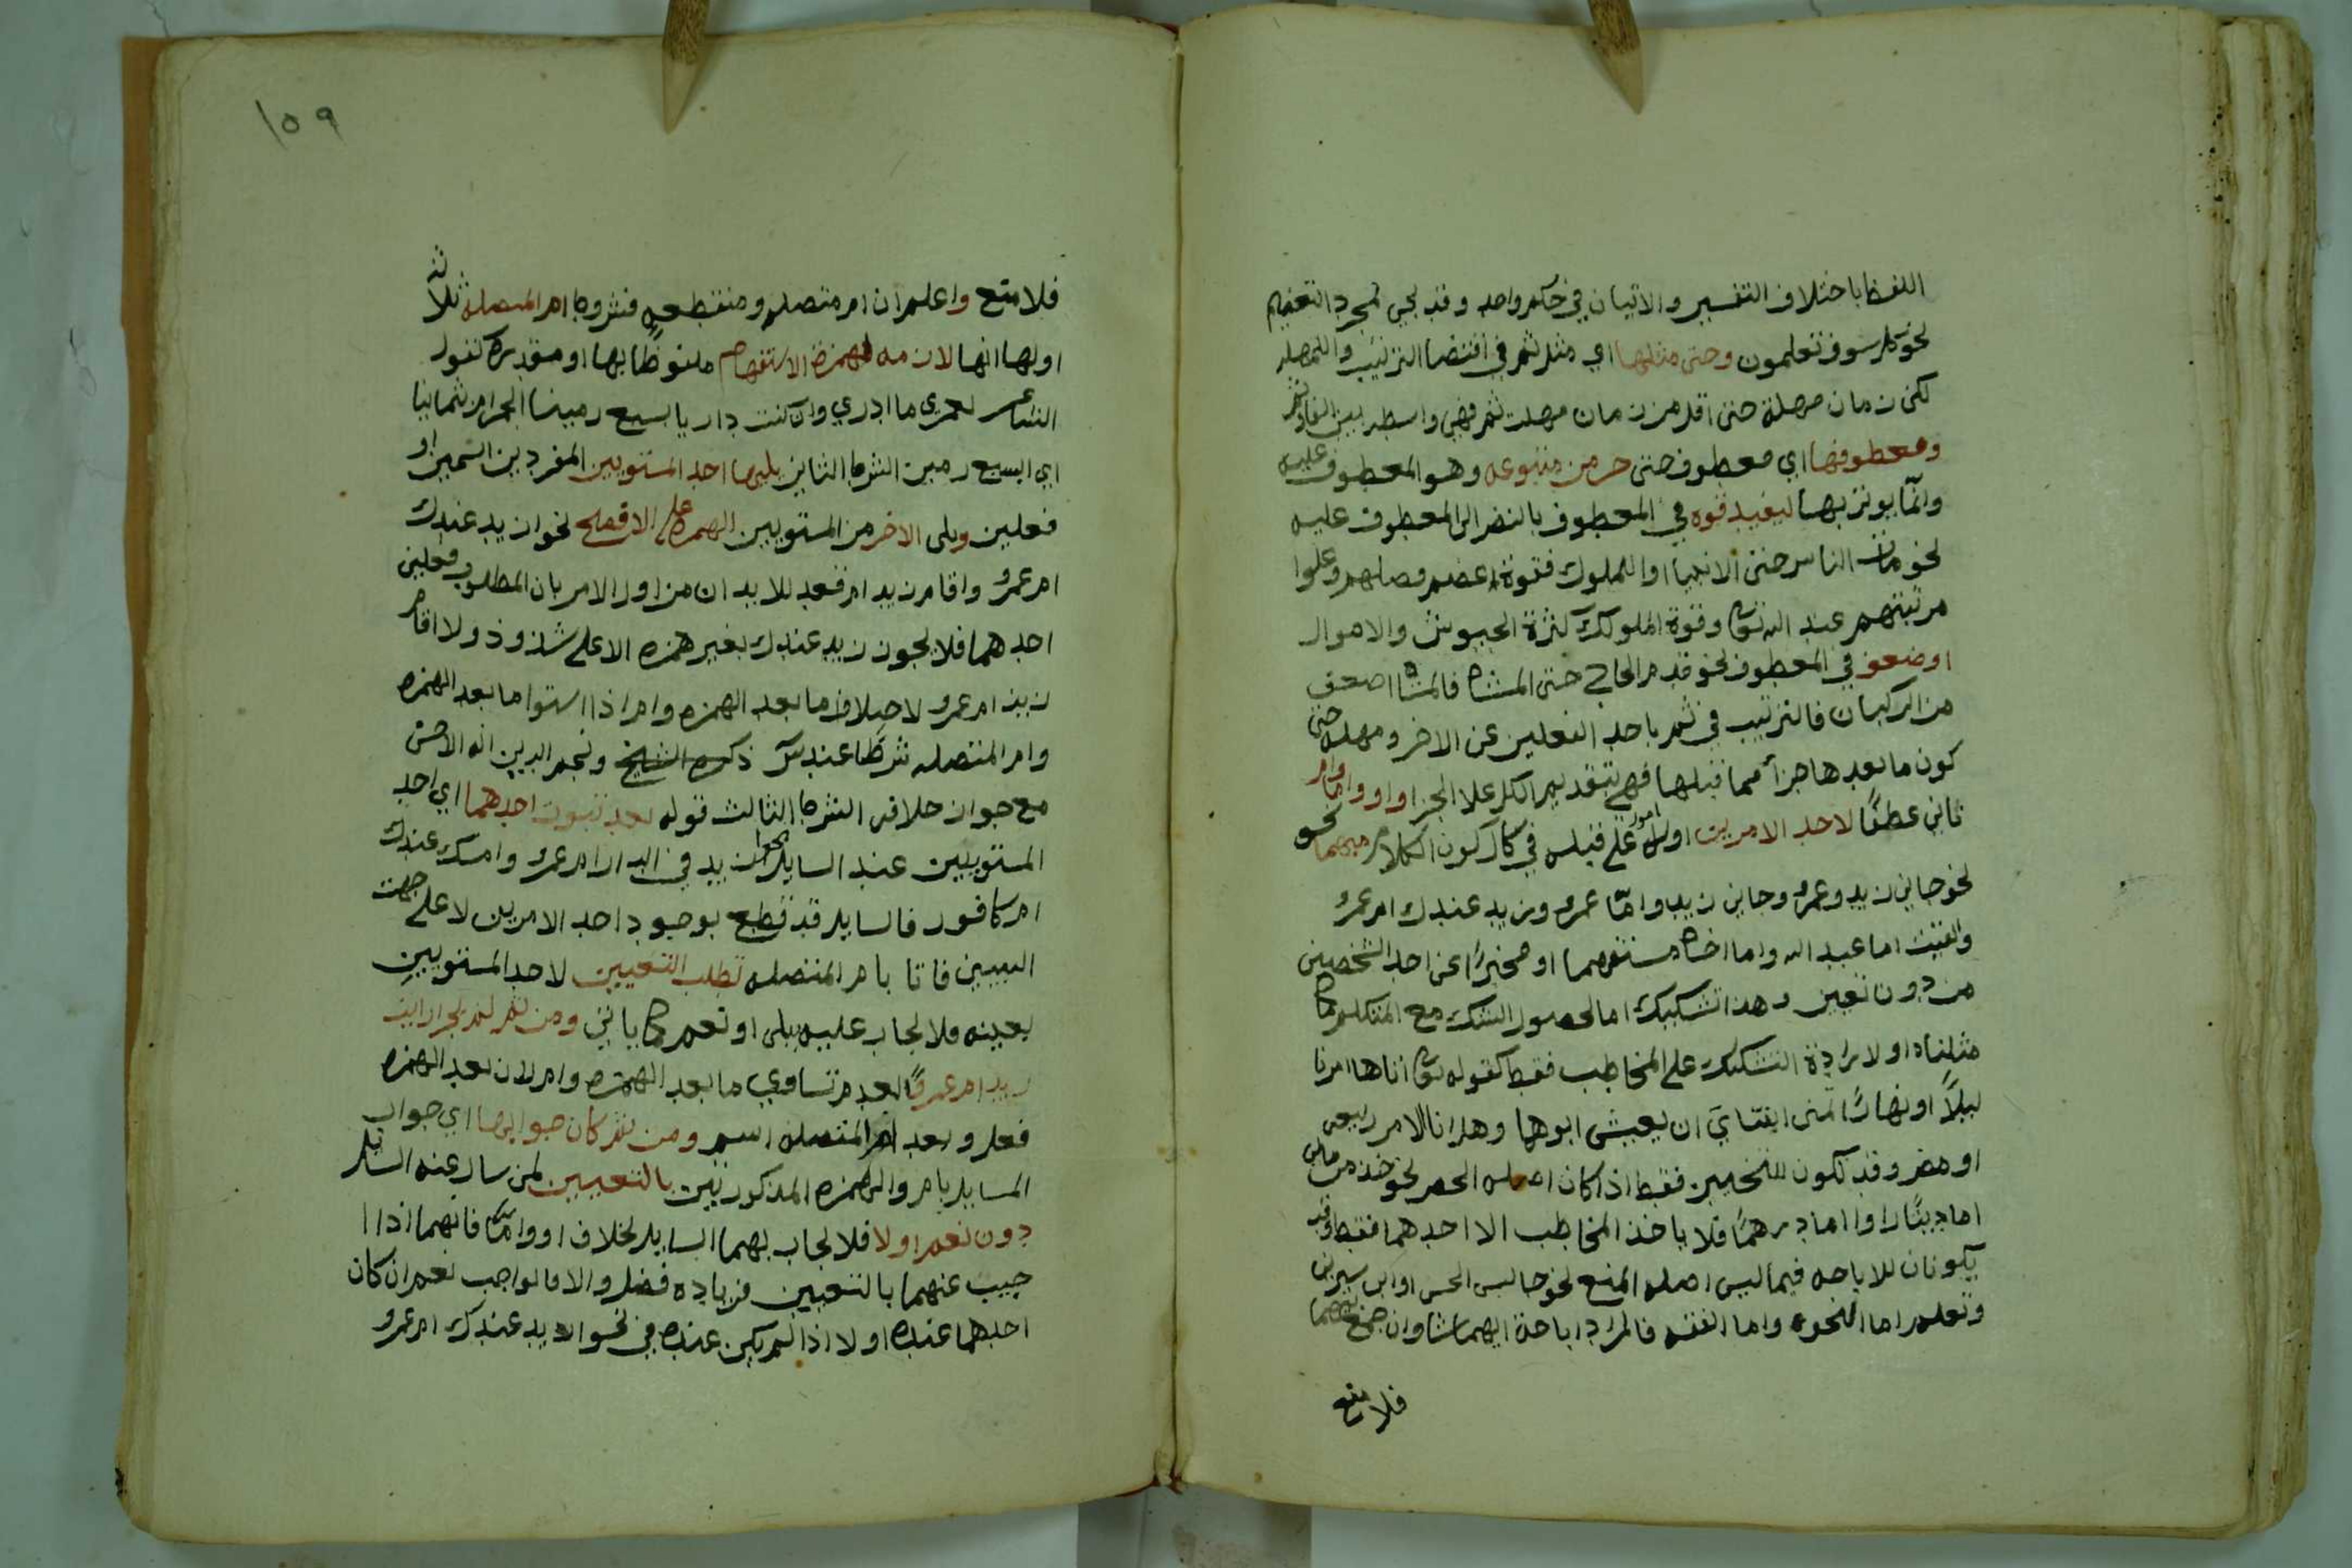 اللفظ باختلاف التفسير والاتيان في حكم واحد وقد يجي لمجرد التعظيم
نحو كلا سوف تعلمون وحتى مثلها اي مثل ثم في اقتضا الترتيب والمهله
لكن زمان مهلة حتى اقل من زمان مهلت ثم فهي واسطه بين الفا وثم
ومعطوفها اي معطوف حتى جز من متبوعه وهو المعطوف عليه
وانما يوتى بها ليفيد قوه في المعطوف بالنضر الى المعطوف عليه
نحو مات الناس حتى الانبيا او الملوك فقوة اعضم فضلهم وعلوا
مرتبتهم عند الله تعالى وقوة الملوك كثرة الجيوش والاموال
او ضعف في المعطوف نحو قدم الحاج حتى المشاه فالمشاه اضعف
من الركبان فالترتيب في ثم باحد الفعلين عن الاخر ومهله حتى
كون ما بعدها جزأ مما قبلها فهي بتقديم الكل علا الجز او واما وام
ثاني عطفا لاحد الامرين او امور على قبله في كال كون الكلام مبهما نحو
نحو جاني زيد وعمرو وجاني زيد واما عمرو وزيد عندك ام عمرو
والقيت اما عبد الله واما اخاه مستفهما او مخبرا عن احد الشخصين
من دون تعين وهذا تشكيك اما لحصول الشك مع المتكلم كما
مثلناه او لارادة التشكيك على المخاطب فقط كقوله تعالى اتاها امرنا
ليلا او نهارا تمنى ابنتاي ان يعيش ابوهما وهل انا الا من ربيعه
او مضر وقد تكون للتخيير فقط اذا كان اصله الحصر نحو خذ من مالي
اما دينارا واما درهما فلا ياخذ المخاطب الا احدهما فقط وقد
يكونان للاباحه فيما ليس اصله المنع نحو جالس الحسن او ابن سيرين
وتعلم اما النحو واما الفقه فالمراد اباحة ايهما شا وان جمع بينهما
فلا منع
١٥٩
فلا منع واعلم ان ام متصله ومنقطعه فشروط ام المتصله ثلاثه
اولها انها لازمه لهمزة الاستفهام ملفوظا بها او مقدره كقول
الشاعر لعمري ما ادري وان كنت داريا بسبع رمين الجمر ام ثمانيا
اي ابسبع رمين الشرط الثاني يليها احد المستويين المفردين اسمين او
فعلين ويلى الاخر من المستويين الهمزه على الافصح نحو ازيد عندك
ام عمرو واقام زيد ام قعد للايدان من اول الامر بان المطلوب تعيين
احدهما فلا يجوز زيد عندك بغير همزه الا على شذوذ ولا اقام
زيد ام عمرو لاختلاف ما بعد الهمزه وام اذا استوا ما بعد الهمزه
وام المتصله شرطا عند س ذكره الشيخ ونجم الدين انه الاحسن
مع جواز خلافه الشرط الثالث قوله بعد ثبوت احدهما اي احد
المستويين عند السايل نحو ازيد في الدار ام عمرو وامسك عندك
ام كافور فالسايل قد قطع بوجود احد الامرين لا على جهت
التعيين فاتا بام المتصله تطلب التعيين لاحد المستويين
بعينه فلا يجاب عليه ببلى او نعم كما ياتي ومن ثم لم يجز ارايت
زيد ام عمرفا لعدم تساوي ما بعد الهمزه وام لان بعد الهمزه
فعل وبعد ام المتصله اسم ومن ثم كان جوابها اي جواب
المسايل بام والهمزه المذكورتين بالتعيين لمن سال عنه السايل
دون نعم او لا فلا يجاب بهما السايل بخلاف او واما فانهما اذا ا
جيب عنهما بالتعيين فزياده فضل والا فالواجب نعم ان كان
احدهما عنده او لا اذا لم يكن عنده في نحو ازيد عندك ام عمرو